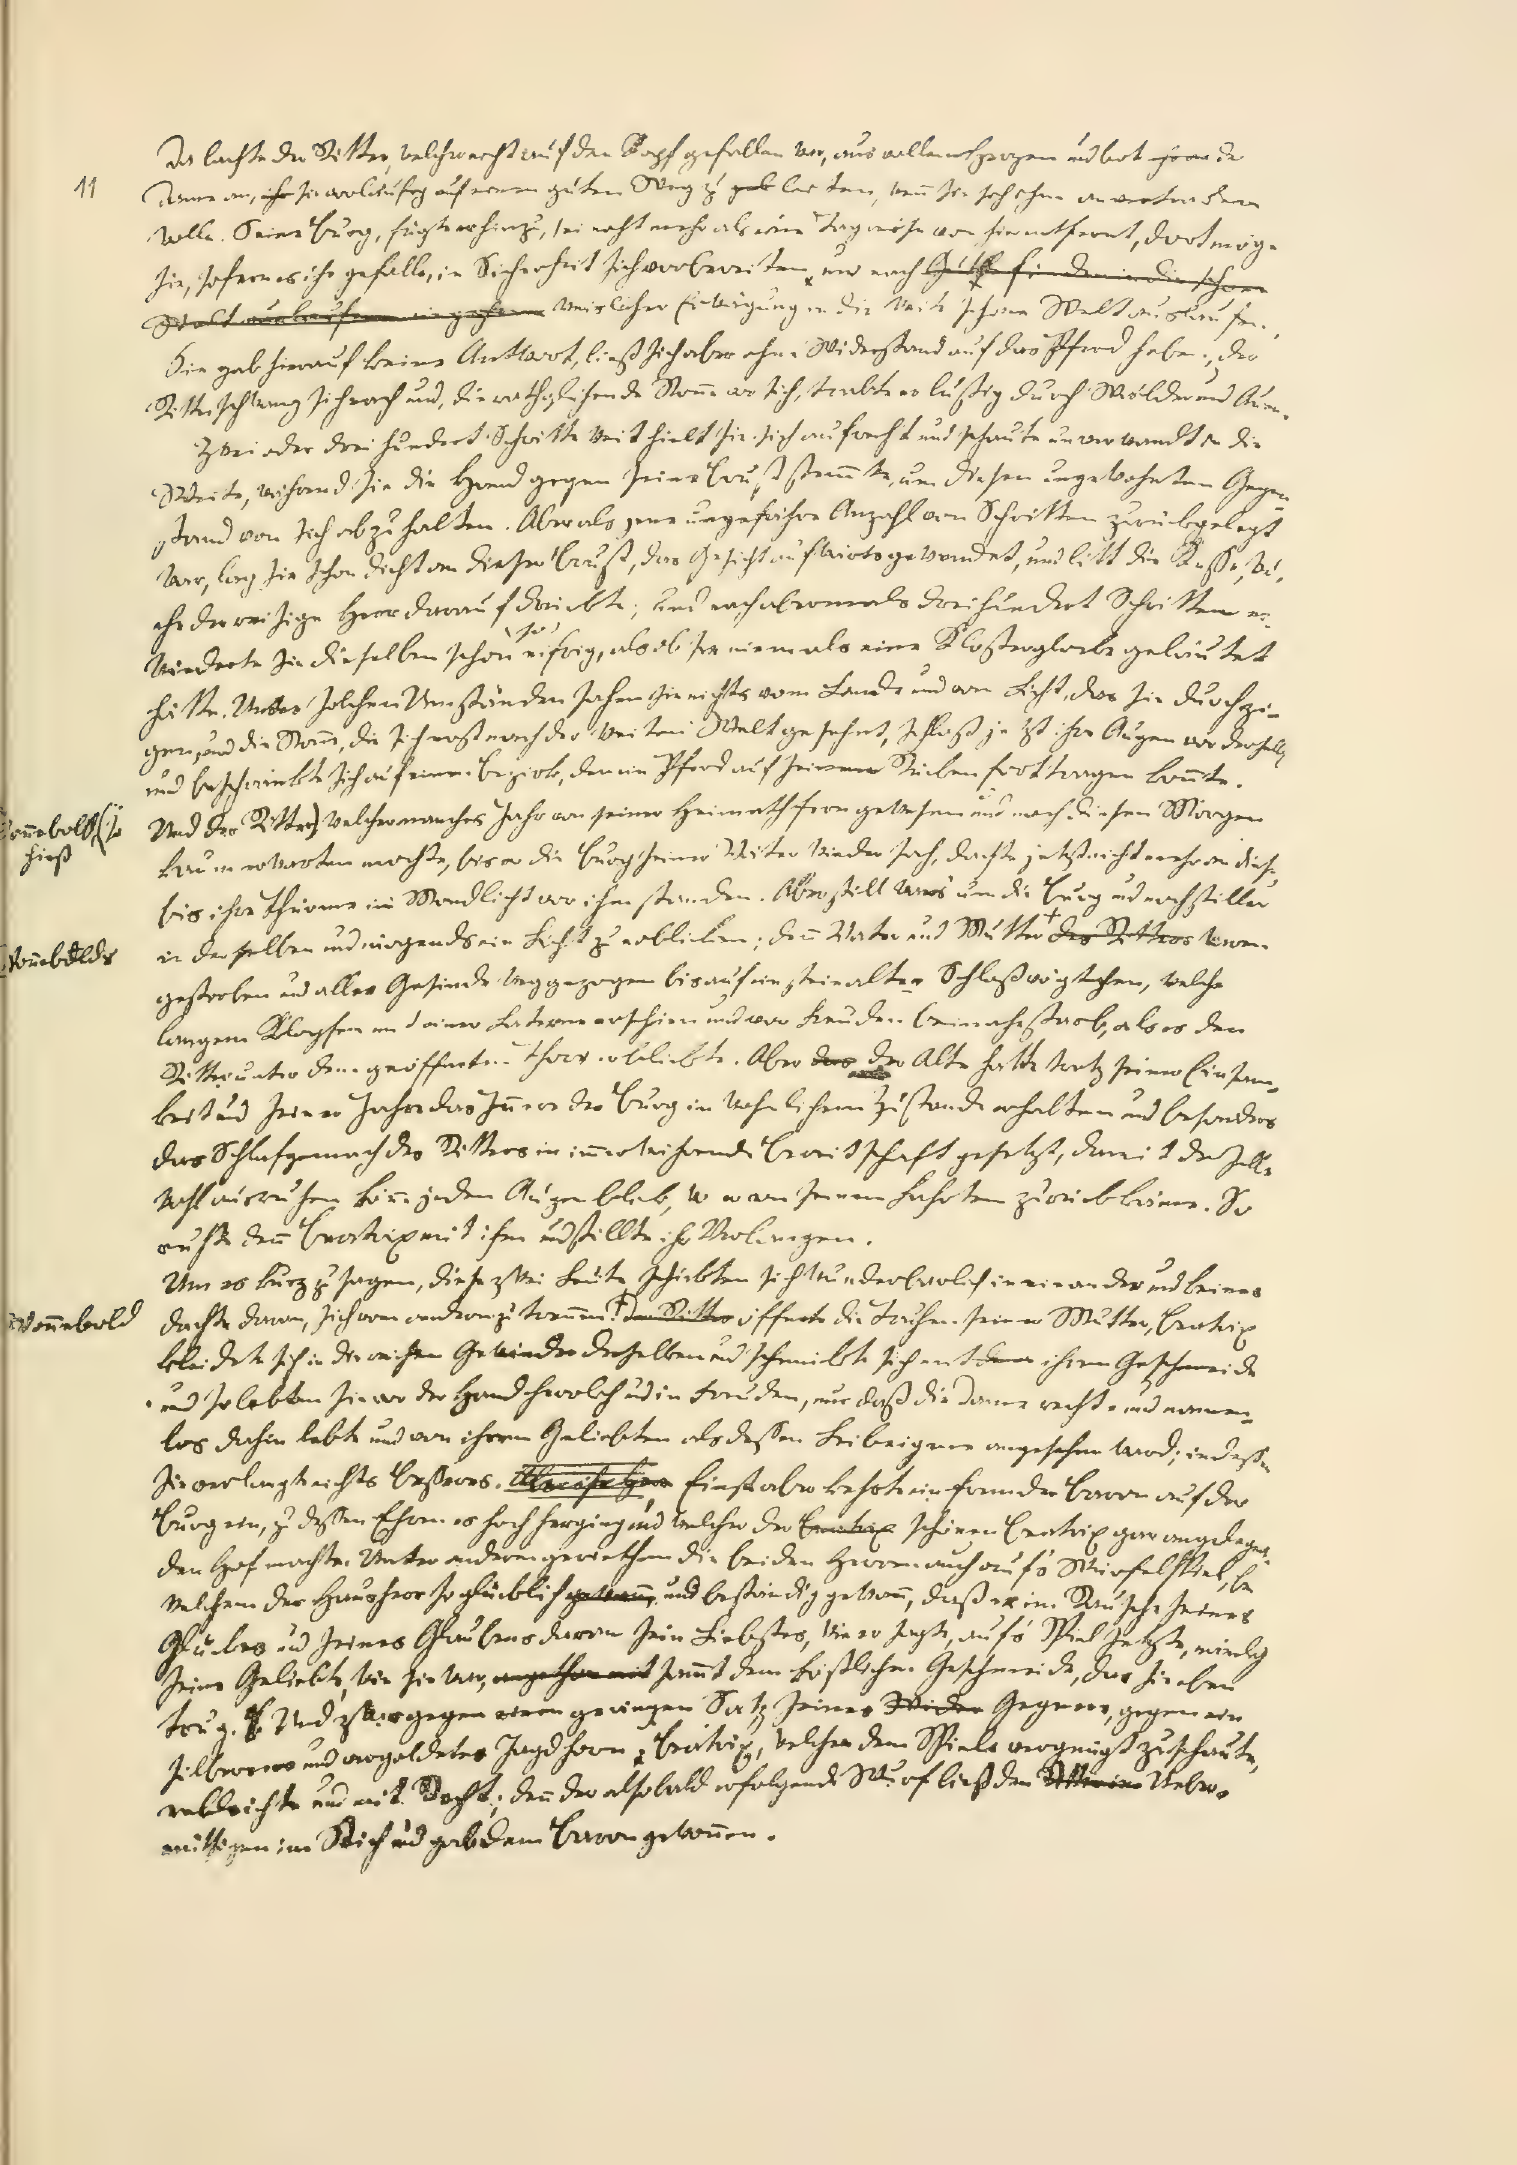 11
Da lachte der Ritter, welcher nicht auf den Kopf gefallen war, aus vollem Herzen und bot der
Dame an, ihr sie vorläufig auf einen guten Weg zu geleiten, wenn sie sich ihm anvertrauen
wolle. Seine Burg, fügte er hinzu, sei nicht mehr als eine Tagreise von hier entfernt, dort möge
sie, sofern es ihr gefalle, in Sicherheit sich vorbereiten, und nach Gut finden in die schöne
Welt auslaufen weislicher Erwägung in die weite schöne Welt auslaufen.
Sie gab hierauf keine Antwort, ließ sich aber ohne Widerstand auf das Pferd heben; der
Ritter schwang sich nach und, die rothglühende Nonne vor sich, trabte er lustig durch Wälder und Auen.
Zwei oder drei hundert Schritte weit hielt sie sich aufrecht und schaute unverwandt in die
Weite, während sie die Hand gegen seine Brust stemmte, um diesen ungewohnten Gegen-
stand von sich abzuhalten. Aber als jene ungefähre Anzahl von Schritten zurückgelegt
war, lag sie schon dicht an dieser Brust, das Gesicht aufwärts gewendet, und litt die Küsse, wel-
che der reisige Herr darauf drückte; und nach abermals dreihundert Schritten er-
wiederte sie dieselben schon so eifrig, als ob sie niemals eine Klosterglocke geläutet
hätte. Unter solchen Umständen sahen sie nichts vom Lande und vom Licht, das sie durchzo-
gen, und die Nonne, die sich erst nach der weiten Welt gesehnt, schloß jetzt ihre Augen vor derselben
und beschränkte sich auf einen Bezirk, den ein Pferd auf seinem Rücken forttragen konnte.
Wonnebold (so
hieß
Und der Ritter) welcher manches Jahr von seiner Heimath fern gewesen und noch diesen Morgen
kaum erwarten mochte, bis er die Burg seiner Väter wieder sah, dachte jetzt nicht mehr an diese,
bis ihre Thürme im Mondlicht vor ihm standen. Aber still war's um die Burg und noch stiller
Wonnebolds
in derselben und nirgends ein Licht zu erblicken; denn Vater und Mutter des Ritters waren
gestorben und alles Gesinde weggezogen bis auf ein steinaltes Schloßvögtchen, welches
langem Klopfen mit einer Laterne erschien und vor Freuden beinahe starb, als es den
Ritter unter dem geöffneten Thore erblickte. Aber das der Alte hatte trotz seiner Einsam-
keit und seiner Jahre das Innere der Burg in wohnlichem Zustande erhalten und besonders
das Schlafgemach des Ritters in immerwährende Bereitschaft gesetzt, damit derselbe
wohl ausruhen könne jeden Augenblick, wo er von seinen Fahrten zurückkäme. So
ruhte denn Beatrix mit ihm und stillte ihr Verlangen.
Um es kurz zu sagen, diese zwei Leute schickten sich wunderbarlich in einander und keines
Wonnebold
dachte daran, sich vom andern zu trennen. Der Ritter öffnete die Truhen seiner Mutter, Beatrix
kleidete sich in die reichen Gewänder derselben und schmückte sich mit ihrem Geschmeide
und so lebten sie vor der Hand herrlich und in Freuden, nur daß die Dame recht- und namen-
los dahin lebte und von ihrem Geliebten als dessen Leibeigene angesehen ward; indessen
sie verlangte nichts Besseres. Einst aber kehrte ein fremder Baron auf der
Burg ein, zu dessen Ehren es hoch herging und welcher der Beatrix schönen Beatrix gar angelegen
den Hof machte. Unter anderm geriethen die beiden Herren auch auf's Würfelspiel, bei
welchem der Hausherr so glücklich gewann, und beständig gewann, daß er im Rausche seines
Glückes und seines Glaubens daran sein Liebstes, wie er sagte, auf's Spiel setzte, nämlich
seine Geliebte, wie sie war, angethan mit sammt dem köstlichen Geschmeide, das sie eben
trug. Und zwar gegen einen geringen Satz seines Wider Gegners, gegen ein
silbernes und vergoldetes Jagdhorn; Beatrix, welche dem Spiele vergnügt zuschaute,
erbleichte und mit Recht; denn der alsobald erfolgende Wurf ließ den Ueber-
müthigen im Stich und gab dem Baron gewonnen.